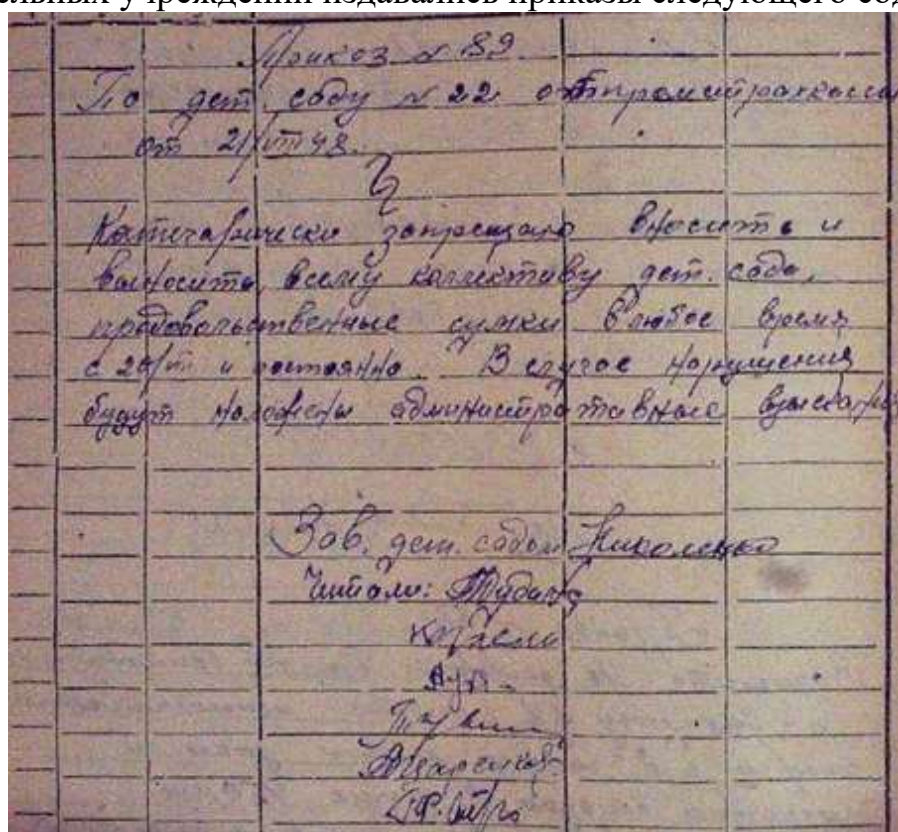 ельных учреждений издавались приказы следующего сод
Приказ № 89
По дет. саду № 22 отпромстрахкассы
от 21/VIII 48.
§
Категарически запрещаю вносить и
выносить всему каллективу дет. сада,
продовольственные сумки в любое время
с 20/VIII и постоянно. В случае нарушения
будут наложены административные взыскан
Зав. дет. садом Николенко
Читали: